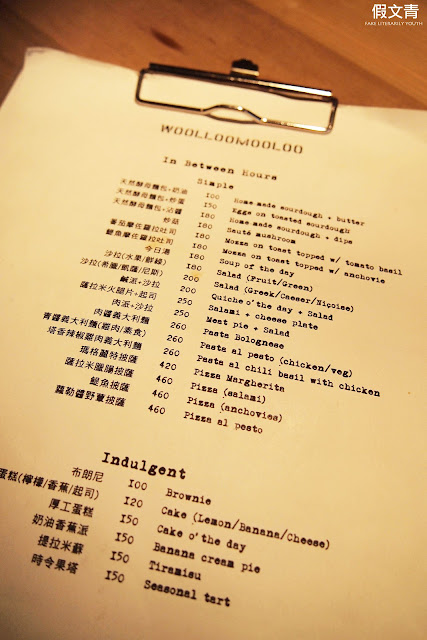 假文青
FAKE LITERARILY YOUTH
WOOLLOOMOOLOO
In Between Hours
Simple
天然酵母麵包+奶油 100 Home made sourdough + butter
天然酵母麵包+炒蛋 180 Eggs on toasted sourdough
天然酵母麵包+沾醬 180 Home made sourdough + dips
炒菇 180 Sauté mushroom
番茄摩佐羅拉吐司 180 Mozza on toast topped w/ tomato basil
鯷魚摩佐羅拉吐司 180 Mozza on toast topped w/ anchovie
今日湯 180 Soup of the day
沙拉(水果/鮮綠) 180 Salad (Fruit/Green)
沙拉(希臘/凱薩/尼斯) 200 Salad (Greek/Caeser/Niçoise)
鹹派+沙拉 200 Quiche o'the day + Salad
薩拉米火腿片+起司 250 Salami + cheese plate
肉派+沙拉 250 Meat pie + Salad
肉醬義大利麵 260 Pasta Bolognese
青醬義大利麵(雞肉/素食) 260 Pasta al pesto (chicken/veg)
塔香辣椒雞肉義大利麵 260 Pasta al chili basil with chicken
瑪格麗特披薩 420 Pizza Margherita
薩拉米臘腸披薩 460 Pizza (salami)
鯷魚披薩 460 Pizza (anchovies)
蘿勒醬野蕈披薩 460 Pizza al pesto
Indulgent
布朗尼 100 Brownie
蛋糕(檸檬/香蕉/起司) 120 Cake (Lemon/Banana/Cheese)
厚工蛋糕 150 Cake o'the day
奶油香蕉派 150 Banana cream pie
提拉米蘇 150 Tiramisu
時令果塔 150 Seasonal tart